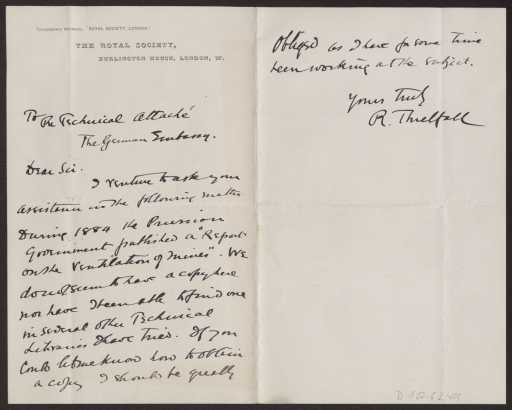 TELEGRAPHIC ADDRESS, "ROYAL SOCIETY, LONDON."
THE ROYAL SOCIETY,
BURLINGTON HOUSE, LONDON, W.
To the Technical Attaché
The German Embassy.
Dear Sir.
I venture to ask your
assistance in the following matter
During 1884 the Prussian
Government published a "Report
on the Ventilation of mines". We
do not seem to have a copy here
nor have I been able to find one
in several other Technical
Libraries I have tried. If you
could let me know how to obtain
a copy I should be greatly
obliged as I have for some time
been working at the subject.
Yours truly
R. Threlfall